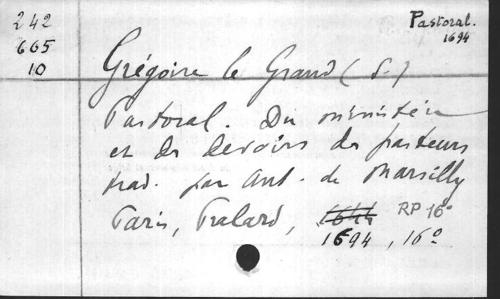 242
665
10
Pastoral.
1694
Grégoire le Grand (S.)
Pastoral. Du ministère
et des devoirs des pasteurs
trad. par Ant. de Marsilly
Paris, Pralard, 1644 RP 16°
1694, 16°